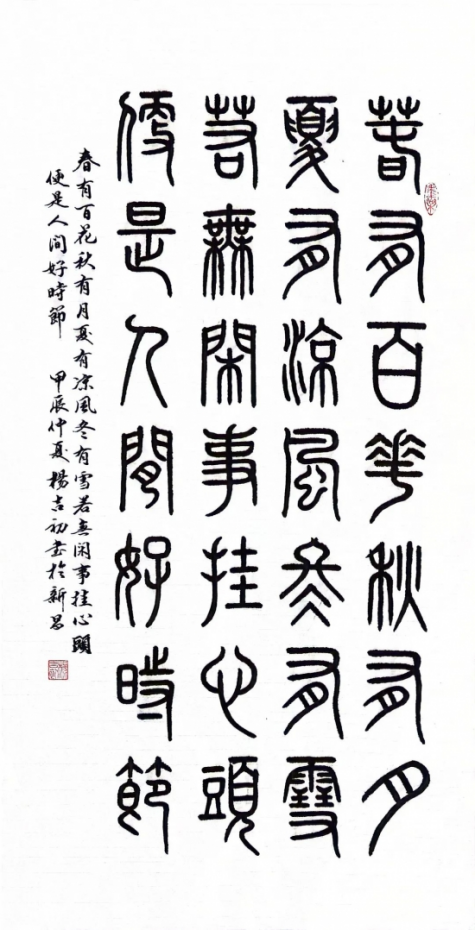 春有百花秋有月
夏有涼風冬有雪
若無閑事挂心頭
便是人間好時節
春有百花秋有月夏有凉風冬有雪若無閑事挂心頭
便是人间好時節 甲辰仲夏楊吉初書於新昌